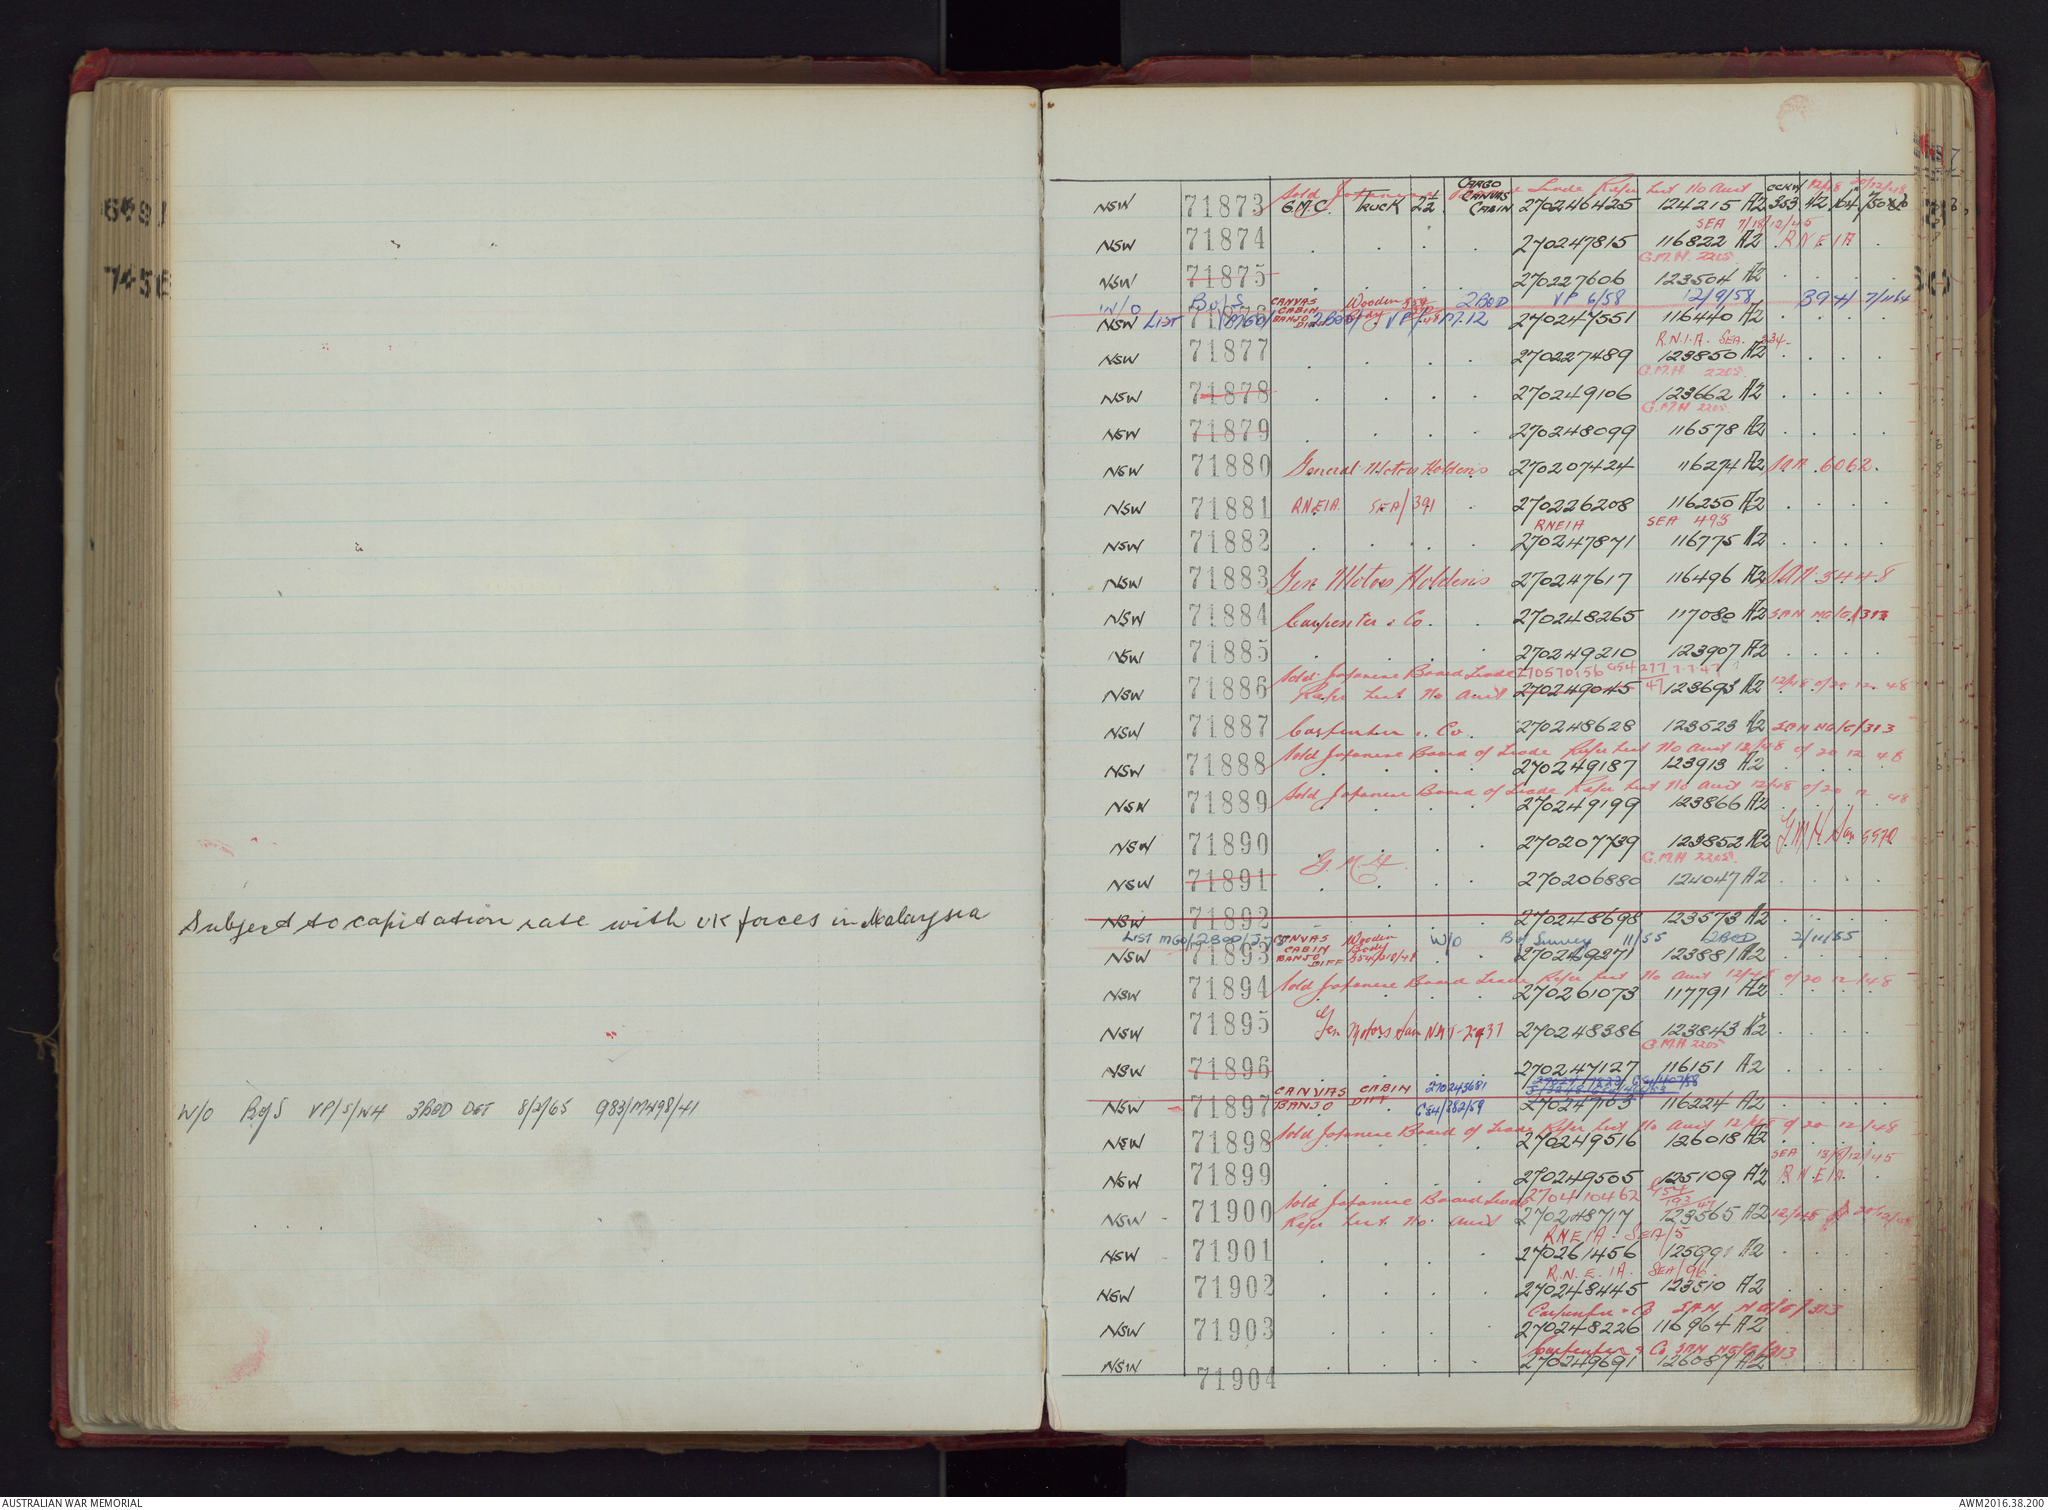 Subject to capitation rate with UK forces in Malaysia
W/O B of S VP/S/W4 3BOD DET 8/2/65 983/MW98/41
Sold Japanese Trade Refer Let No Aust 12/48 20/12/48
CARGO CANVAS CABIN
NSW 71873 G.M.C. TRUCK 2½ 270246425 124215 A2 CCKW 353 42 164
SEA 7/18/12/45
NSW 71874 270247815 116822 A2 RNEIA
G.M.H. 2205
NSW 71875 270227606 123504 A2
W/O B of S CANVAS CABIN Wooden 2BOD VP 6/58 12/9/58 B94
NSW LIST BANJO DIFF 2BOD VP PT.12 270247551 116440 A2
R.N.I.A. SEA. 234
NSW 71877 270227489 123850 A2
G.M.H. 2205
NSW 71878 270249106 123662 A2
G.M.H 2205
NSW 71879 270248099 116578 A2
NSW 71880 General Motors Holdens 270207424 116274 A2 SAN 6062
NSW 71881 RNEIA SEA/391 270226208 116250 A2
RNEIA SEA 495
NSW 71882 270247871 116775 A2
NSW 71883 Gen Motors Holdens 270247617 116496 A2 SAN 3448
NSW 71884 Carpenter & Co. 270248265 117080 A2 SAN NG/G/313
NSW 71885 270249210 123907 A2
Sold Japanese Board Trade 270570156 G54 277/47 7.7.47
NSW 71886 Refer Let No Aust 270249045 123693 A2 12/48 of 20 12 48
NSW 71887 Carpenter & Co. 270248628 123523 A2 SAN NG/G/313
Sold Japanese Board of Trade Refer Let No Aust 12/48 of 20 12 48
NSW 71888 270249187 123913 A2
Sold Japanese Board of Trade Refer Let No Aust 12/48 of 20 12 48
NSW 71889 270249199 123866 A2
NSW 71890 270207739 123852 A2 G.M.H San 5570
G.M.H 2205
NSW 71891 G.M.H. 270206880 124047 A2
NSW 71892 270248698 123573 A2
LIST MGO/2BOD CANVAS CABIN Wooden Body W/O B of Survey 11/55 2BOD 2/11/55
NSW 71893 BANJO DIFF 270249271 123881 A2
Sold Japanese Board Trade Refer Let No Aust 12/48 of 20 12/48
NSW 71894 270261073 117791 A2
NSW 71895 Gen Motors San 270248386 123843 A2
G.M.H 2205
NSW 71896 270247127 116151 A2
CANVAS CABIN 270243681
NSW 71897 BANJO DIFF C54/382/59 270247103 116224 A2
Sold Japanese Board of Trade Refer Let No Aust 12/48 of 20 12/48
NSW 71898 270249516 126018 A2
SEA 13/8/12/45
NSW 71899 270249505 125109 A2 R.N.E.I.A.
Sold Japanese Board Trade 270410462 G54 193/47
NSW 71900 Refer Let. No. Aust 270248717 123565 A2 12/48 of 20/12/48
RNEIA. SEA/5
NSW 71901 270261456 125991 A2
R.N.E.IA. SEA/96.
NSW 71902 270248445 123510 A2
Carpenter & Co SAN NG/G/313
NSW 71903 270248226 116964 A2
Carpenter & Co SAN NG/G/313
NSW 71904 270249691 126087 A2
AUSTRALIAN WAR MEMORIAL
AWM2016.38.200